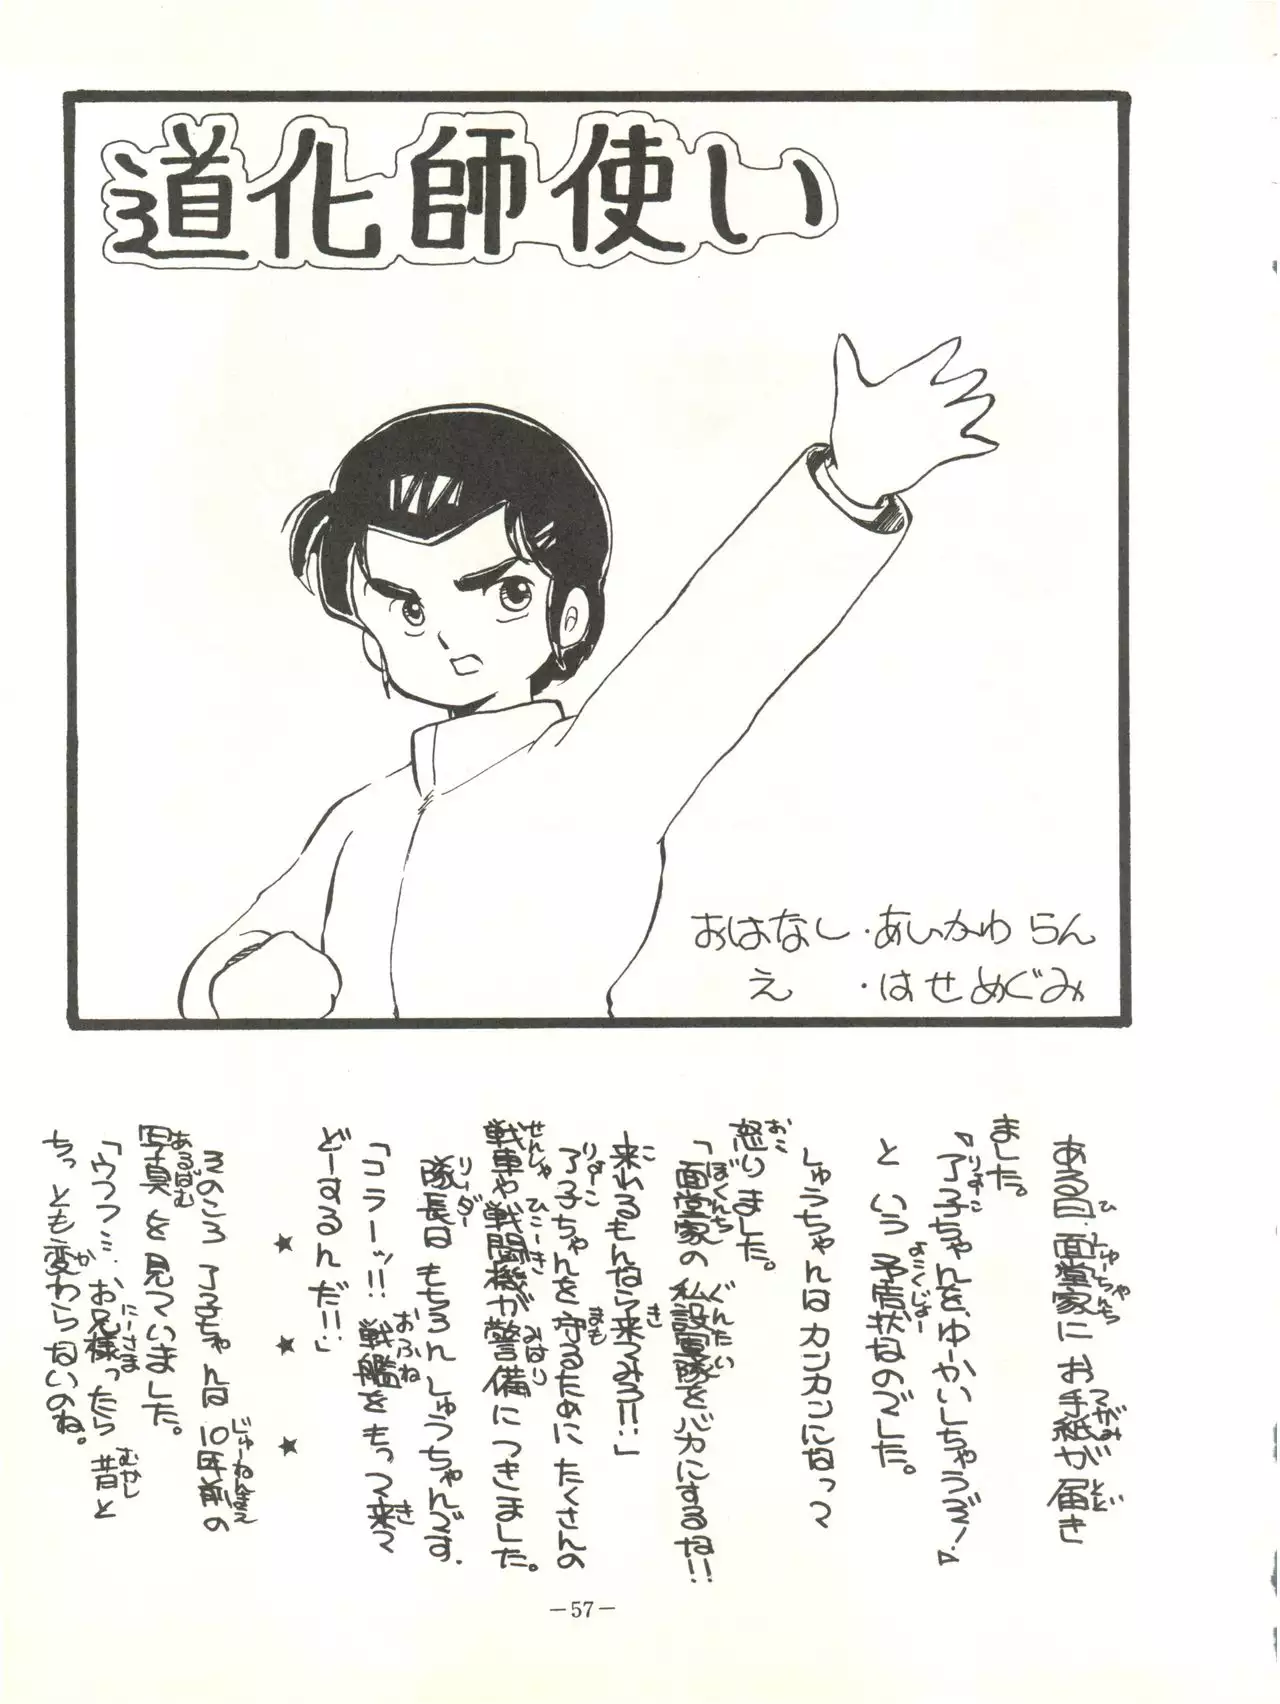 道化師使い
おはなし・あいかわらん
え・はせめぐみ
ある日、面堂家にお手紙が届き
ました。
『了子ちゃんを、ゆーかいしちゃうぞ！』
という予告状なのでした。
しゅうちゃんはカンカンになって
怒りました。
「面堂家の私設軍隊をバカにするな!!
来れるもんなら来てみろ!!」
了子ちゃんを守るために たくさんの
戦車や戦闘機が警備につきました。
隊長は もちろん しゅうちゃんです.
「コラーッ!! 戦艦をもって来て
どーするんだ!!」
★ ★ ★
そのころ 了子ちゃんは 10年前の
写真を見ていました。
「ウフフ… お兄様ったら 昔と
ちっとも変わらないのね。
－57－